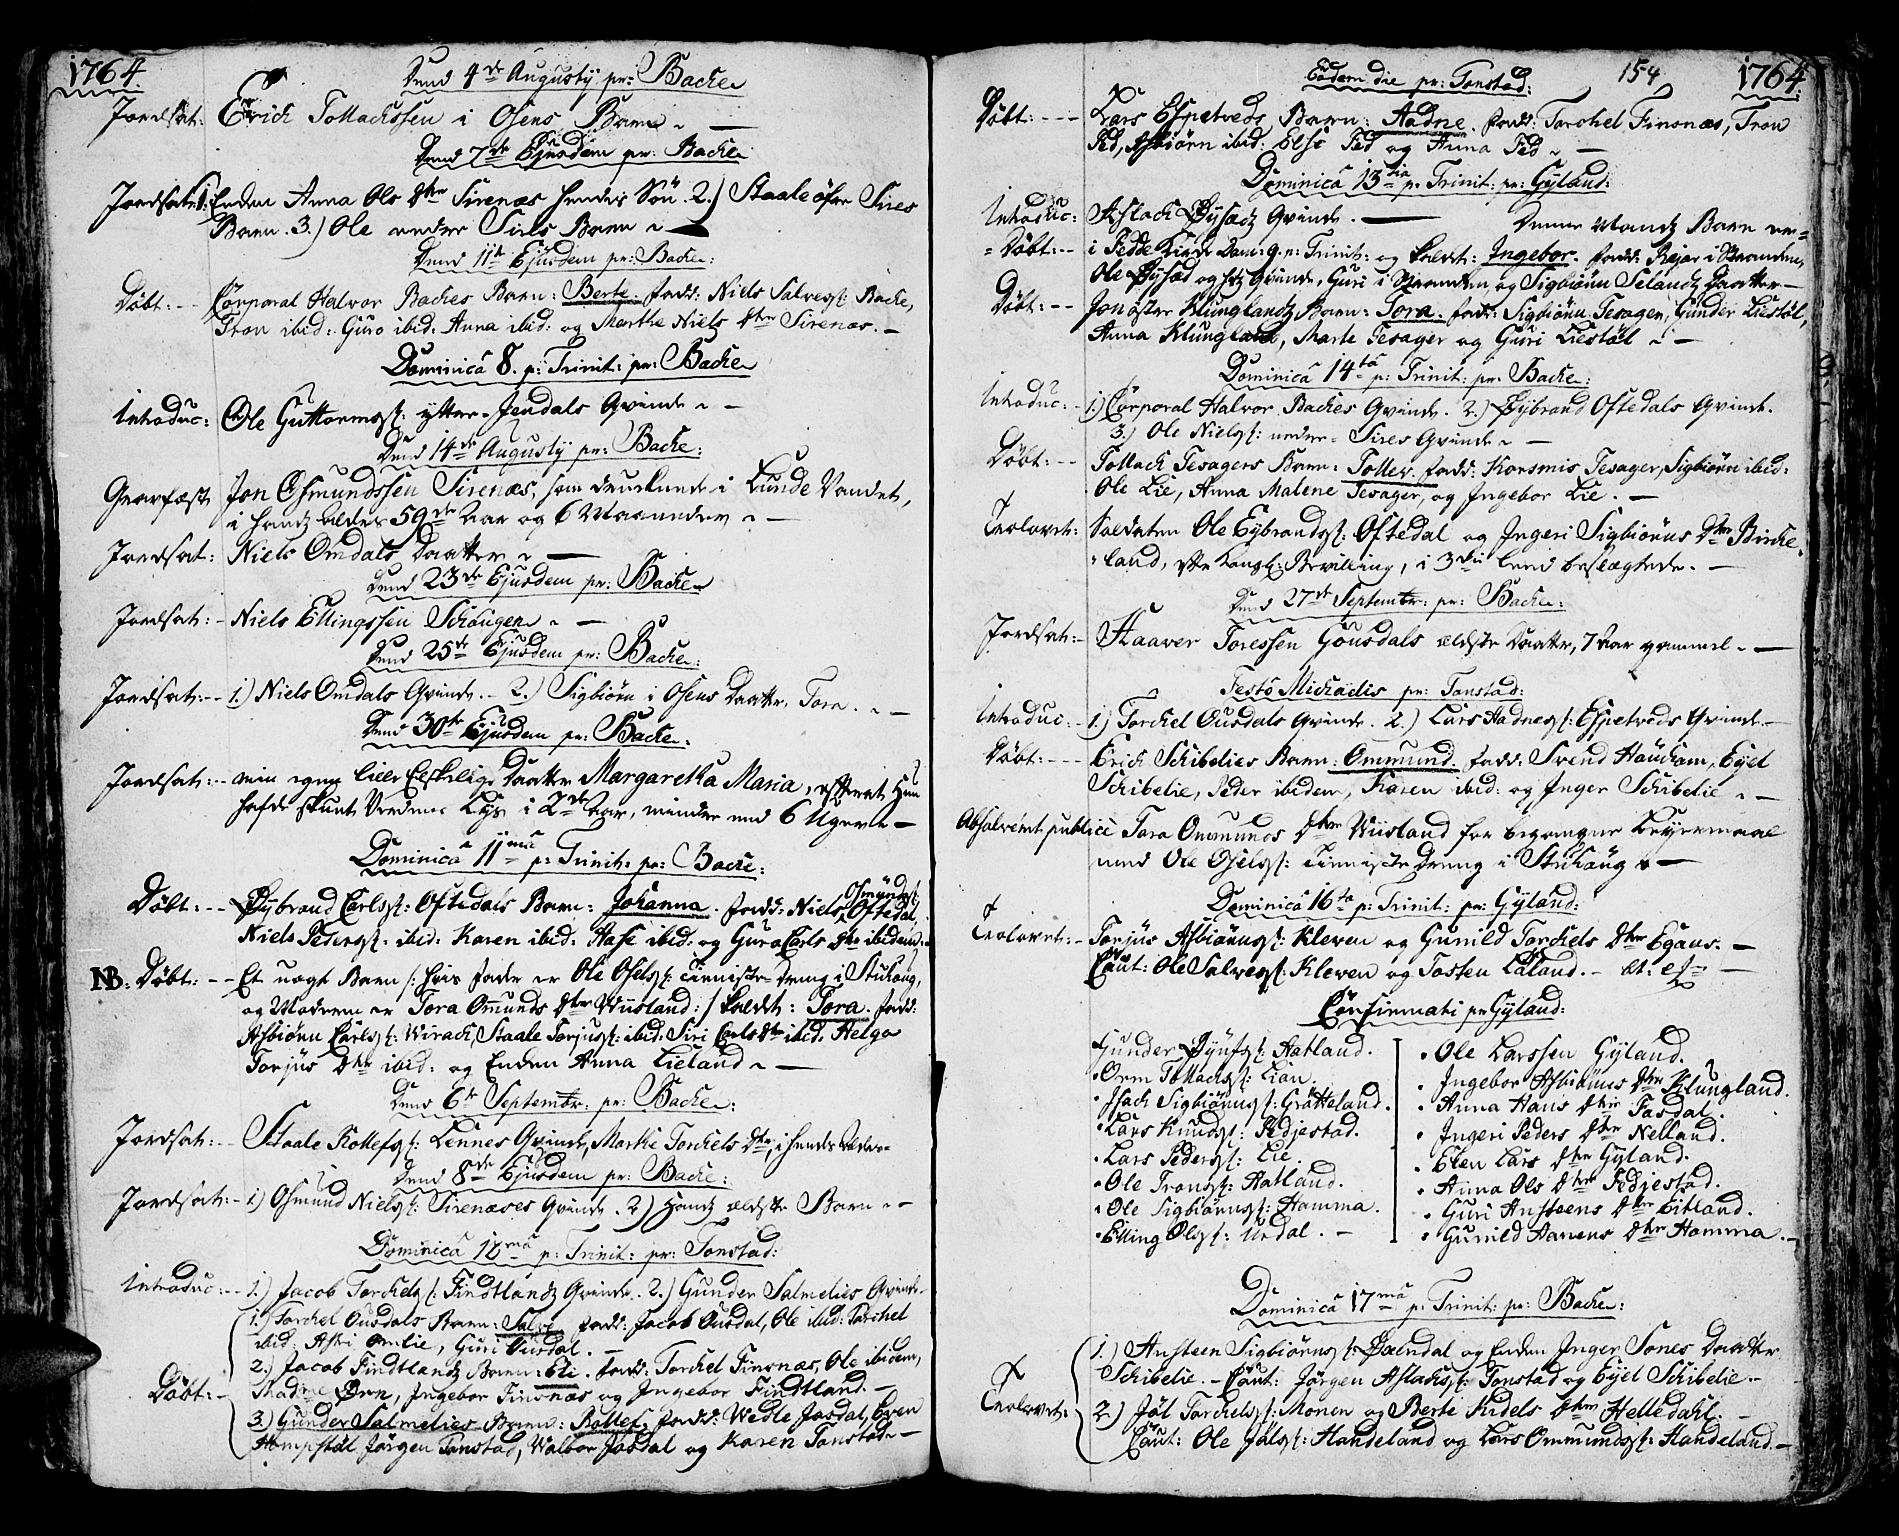 1764.
Dend 4de Augustij pr: Backe
Jordsat: Erich Tollachssen i Osens Barn
Dend 7de Ejusdem pr: Backe
Jordsat: 1. Enden Anna Ols Dtr Sirenæs hendes Sön. 2.) Staale öfre Sires
Barn. 3.) Ole nedre Sires Barn
Dend 11te Ejusdem pr: Backe:
Döbt: Corporal Halvor Backes Barn: Berte. fadd: Niels Salvegs: Backe,
Tron ibid: Guro ibid: Anna ibid: og Marthe Niels Dtr Sirenæs.
Dominica 8. p: Trinit: pr: Backe
Introduc: Ole Guttormgs: ytter-Jendals Qvinde
Dend 14de Augustij pr: Backe:
Jon Osmundssen Sirenæs, som druknede i Lunde Vandet,
i hands alders 59de Aar og 6 Maaneder
Jordsat: Niels Omdals Daatter
Dend 23de Ejusdem pr: Backe
Jordsat: Niels Ellingssen Schougen
Dend 25de Ejusdem pr: Backe:
Jordsat: 1.) Niels Omdals Qvinde. 2.) Sigbiörn i Osens Daatter, Tora.
Dend 30te Ejusdem pr: Backe:
Jordsat: min egen lille Elskelige Daatter Margaretha Maria, efterat Hun
hafde skuet Verdens Lys i 2de Aar, mindre end 6 Uger
Dominica 11ma p: Trinit: pr: Backe:
Döbt: Eybrand Carlss: Oftedals Barn: Johanna. fadd: Niels Osmundgs: Oftedal,
Niels Pedergs: ibid: Karen ibid: Aase ibid: og Guro Carls Dtr ibidem:
NB: Döbt: Et uægt Barn /: hvis fader er Ole Oselgs: tieniste Dreng i Stuhoug,
og Moderen er Tora Omunds Dtr Wiistland :/ kaldet: Tora. fadd:
Asbiörn Carlgs: Wirach, Staale Torjusgs: ibid: Siri Carls Dtr ibid: Helga
Torjus Dtr ibid: og Enden Anna Lieland
Dend 6te Septembr: pr: Backe:
Jordsat: Staale Rollefgs: Lennes Qvinde, Marthe Torchels Dtr,
Dend 8de Ejusdem pr: Backe:
Jordsat: 1.) Osmund Nielgs: Sirenæses Qvinde. 2.) Hands ældste Barn
Dominica 12ma p: Trinit: pr: Tonstad:
Introduc: 1.) Jacob Torchelgs: Findtlands Qvinde. 2.) Gunder Salmelies Qvinde
1.) Torchel Ousdals Barn: Salve. fadd: Jacob Ousdal, Ole ibid: Torchel
ibid: Astri Omlie, Guri Ousdal.
2.) Jacob Findtlands Barn: Eli. fadd: Torchel Finsnæs, Ole ibidem,
Döbt: Madme Örn, Ingebor Finsnæs og Ingebor Findtland.
3.) Gunder Salmelies Barn: Rollef. fadd: Wedle Josdal, Even
Hompstöl, Jörgen Tonstad, Walbor Josdal og Karen Tonstad
Eodem die pr: Tonstad:
154
1764.
Döbt: Lars Espetveds Barn: Aadne. fadd: Torchel Finsnæs, Tron
Fed, Asbiörn ibid: Elsi Fed og Anna Fed
Dominica 13tia p: Trinit: pr: Gyland:
Introduc: Aslach Qvinde. Denne Mands Barn er
Döbt: i Fedde Kirke Dom: 9. p: Trinit: og kaldet: Ingebor. fadd: Rejar i Braanden,
Ole og hs Qvinde, Guri i Braanden og Sigbiörn Selands Daatter
Döbt: Jon öfter Klunglands Barn: Tora. fadd: Sigbiörn Tesager, Gunder Liestöl,
Anna Klungland, Marte Tesager og Guri Liestöl
Dominica 14ta p: Trinit: pr: Backe:
Introduc: 1.) Corporal Halvor Backes Qvinde. 2.) Eybrand Oftedals Qvinde.
3.) Ole Nielgs: nedre-Sires Qvinde
Döbt: Tollach Tesagers Barn: Tollev. fadd: Korsmis Tesager, Sigbiörn ibid:
Ole Lie, Anna Malene Tesager, og Ingebor Lie.
Trolovet: Soldaten Ole Eybrandgs: Oftedal og Ingeri Sigbiörns Dtr Bircke-
land, efter Kongl: Bevilling, i 3die Leed beslægtede.
Dend 27de Septembr: pr: Backe:
Jordsat: Haaver Toressen Gousdals ældste Daatter, 7 Aar gammel
Festo Michaëlis pr: Tonstad:
Introduc: 1.) Torchel Ousdals Qvinde. 2.) Lars Aadnegs: Espetveds Qvinde
Döbt: Erich Schibelies Barn: Ommund. fadd: Svend Houchom, Eyel
Schibelie, Peder ibidem, Karen ibid: og Inger Schibelie
Absolveret publicè Tora Ommunds Dtr Wiistland for begangne Leyermaal
med Ole Oselgs: tieniste Dreng i Stuhoug
Dominica 16ta p: Trinit: pr: Gyland:
Trolovet: Torjus Asbiörngs: Kleven og Gunild Torchels Dtr Egaas.
Caut: Ole Salvegs: Kleven og Tosten Laland.
Confirmati pr Gyland:
Gunder Aatland.
Orm Tollachgs: Lian.
Isach Sigbiörngs: Grötteland.
Lars Knudgs: Fedjestad.
Lars Pedergs: Lie.
Ole Trongs: Hatland.
Ole Sigbiörngs: Hamma.
Elling Olsgs: Urdal.
Ole Larssen Gyland.
Ingebor Asbiörns Dtr Klungland.
Anna Hans Dtr Fasdal.
Ingeri Peders Dtr Nelland.
Elen Lars Dtr Gyland.
Anna Ols Dtr Fedjestad.
Guri Ansteens Dtr Eitland.
Gunild Aanens Dtr Hamma.
Dominica 17ma p: Trinit: pr: Backe:
1.) Ansteen Sigbiörngs: og Enden Inger Sones Daatter
Schibelie. Caut: Jörgen Aslachgs: Tonstad og Eyel Schibelie
Trolovet: 2.) Jöl Torchelgs: Monen og Berte Kidels Dtr Helledahl.
Caut: Ole Jölgs: Handeland og Lars Ommundgs: Handeland.